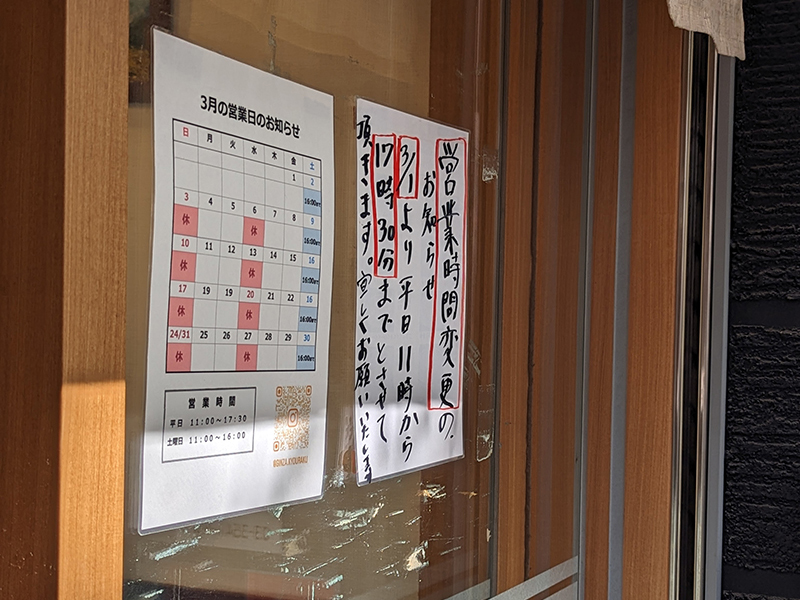 3月の営業日のお知らせ
日 月 火 水 木 金 土
1 2
16:00まで
3 4 5 6 7 8 9
休 休 16:00まで
10 11 12 13 14 15 16
休 休 16:00まで
17 19 19 20 21 22 16
休 休 16:00まで
24/31 25 26 27 28 29 30
休 休 16:00まで
営業時間
平日 11:00～17:30
土曜日 11:00～16:00
@GINZA.KYOURAKU
営業時間変更の
お知らせ
3/1より平日11時から
17時30分までとさせて
頂きます。宜しくお願いいたします